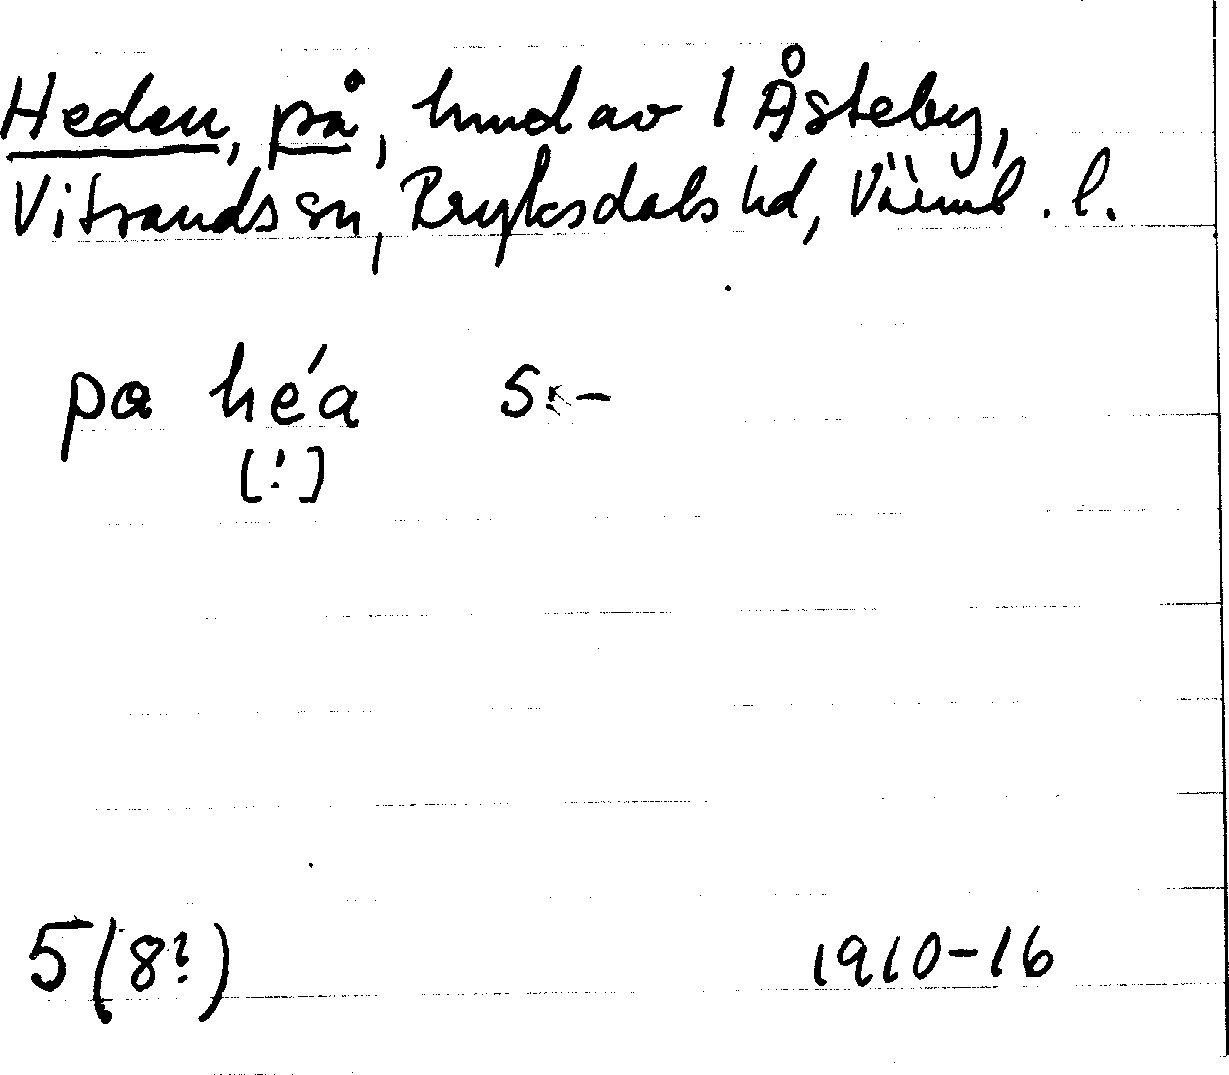 Heden, på, hmd av 1 Åsteby,
Vitsands sn, Fryksdals hd, Värml. l.
pa héa 5:-
[!]
5(8?)
1910-16